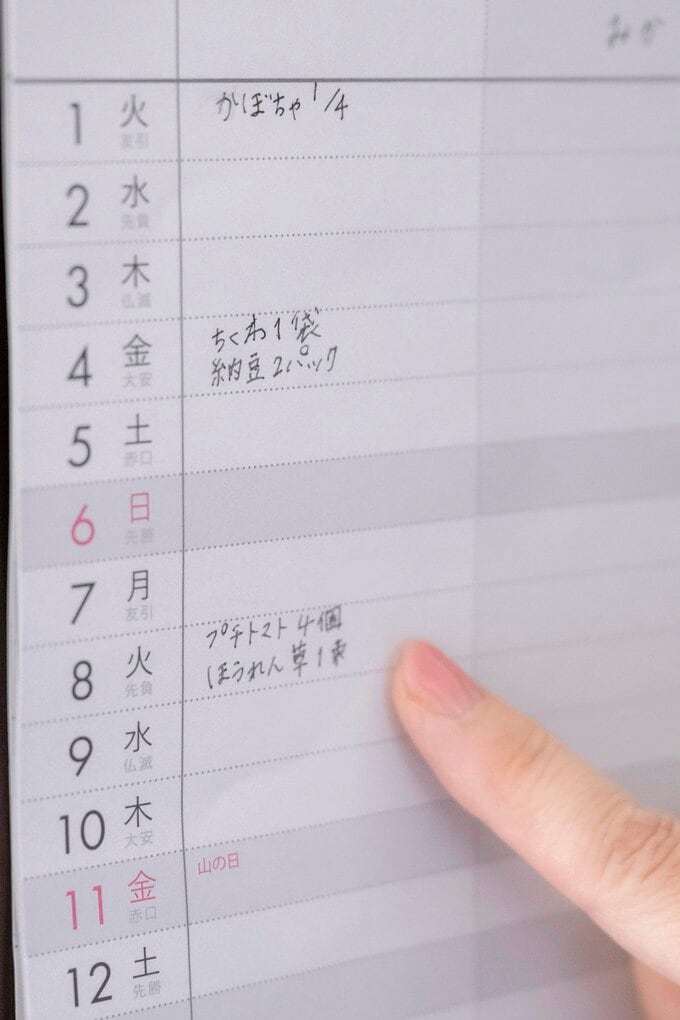 みか
1 火 友引 かぼちゃ 1/4
2 水 先負
3 木 仏滅
4 金 大安 ちくわ1袋
納豆2パック
5 土 赤口
6 日 先勝
7 月 友引
8 火 先負 プチトマト4個
ほうれん草1束
9 水 仏滅
10 木 大安
11 金 赤口 山の日
12 土 先勝